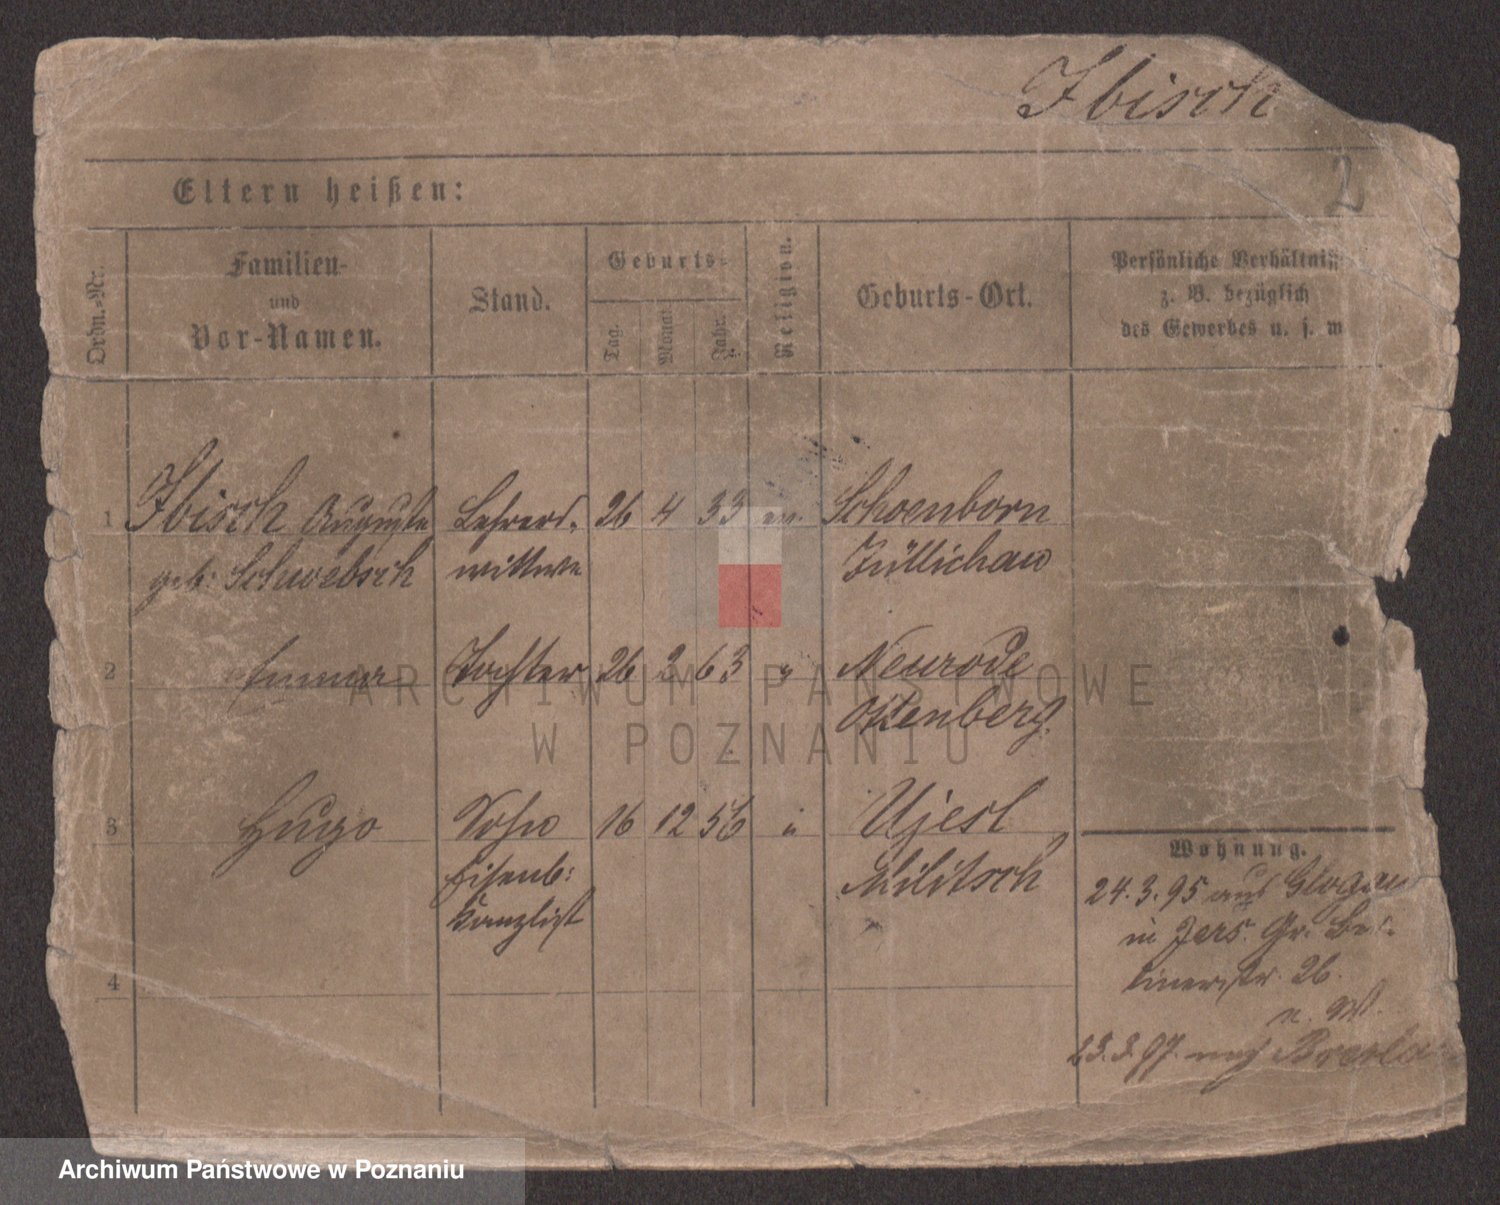 Ibisch
2
Eltern heißen:
Ordn.-Nr.
Familien-
und
Vor-Namen.
Stand.
Geburts-
Tag.
Monat.
Jahr.
Religion.
Geburts-Ort.
Persönliche Verhältniss
z. B. bezüglich
des Gewerbes u. s. w
1 Ibisch Auguste Lehrers- 26 4 33 ev. Schoenborn
geb: Schwebsch wittwe Züllichau
2 Emma Tochter 26 2 63 " Neurode
Ottenberg
3 Hugo Sohn 16 12 56 " Ujest
Eisenb: Militsch
Kanzlist
4
Wohnung.
24.3.95 aus Glogau
in Jers. Gr. Ber-
linerstr. 26.
23.3.97. nach Breslau
ARCHIWUM PAŃSTWOWE
W POZNANIU
Archiwum Państwowe w Poznaniu